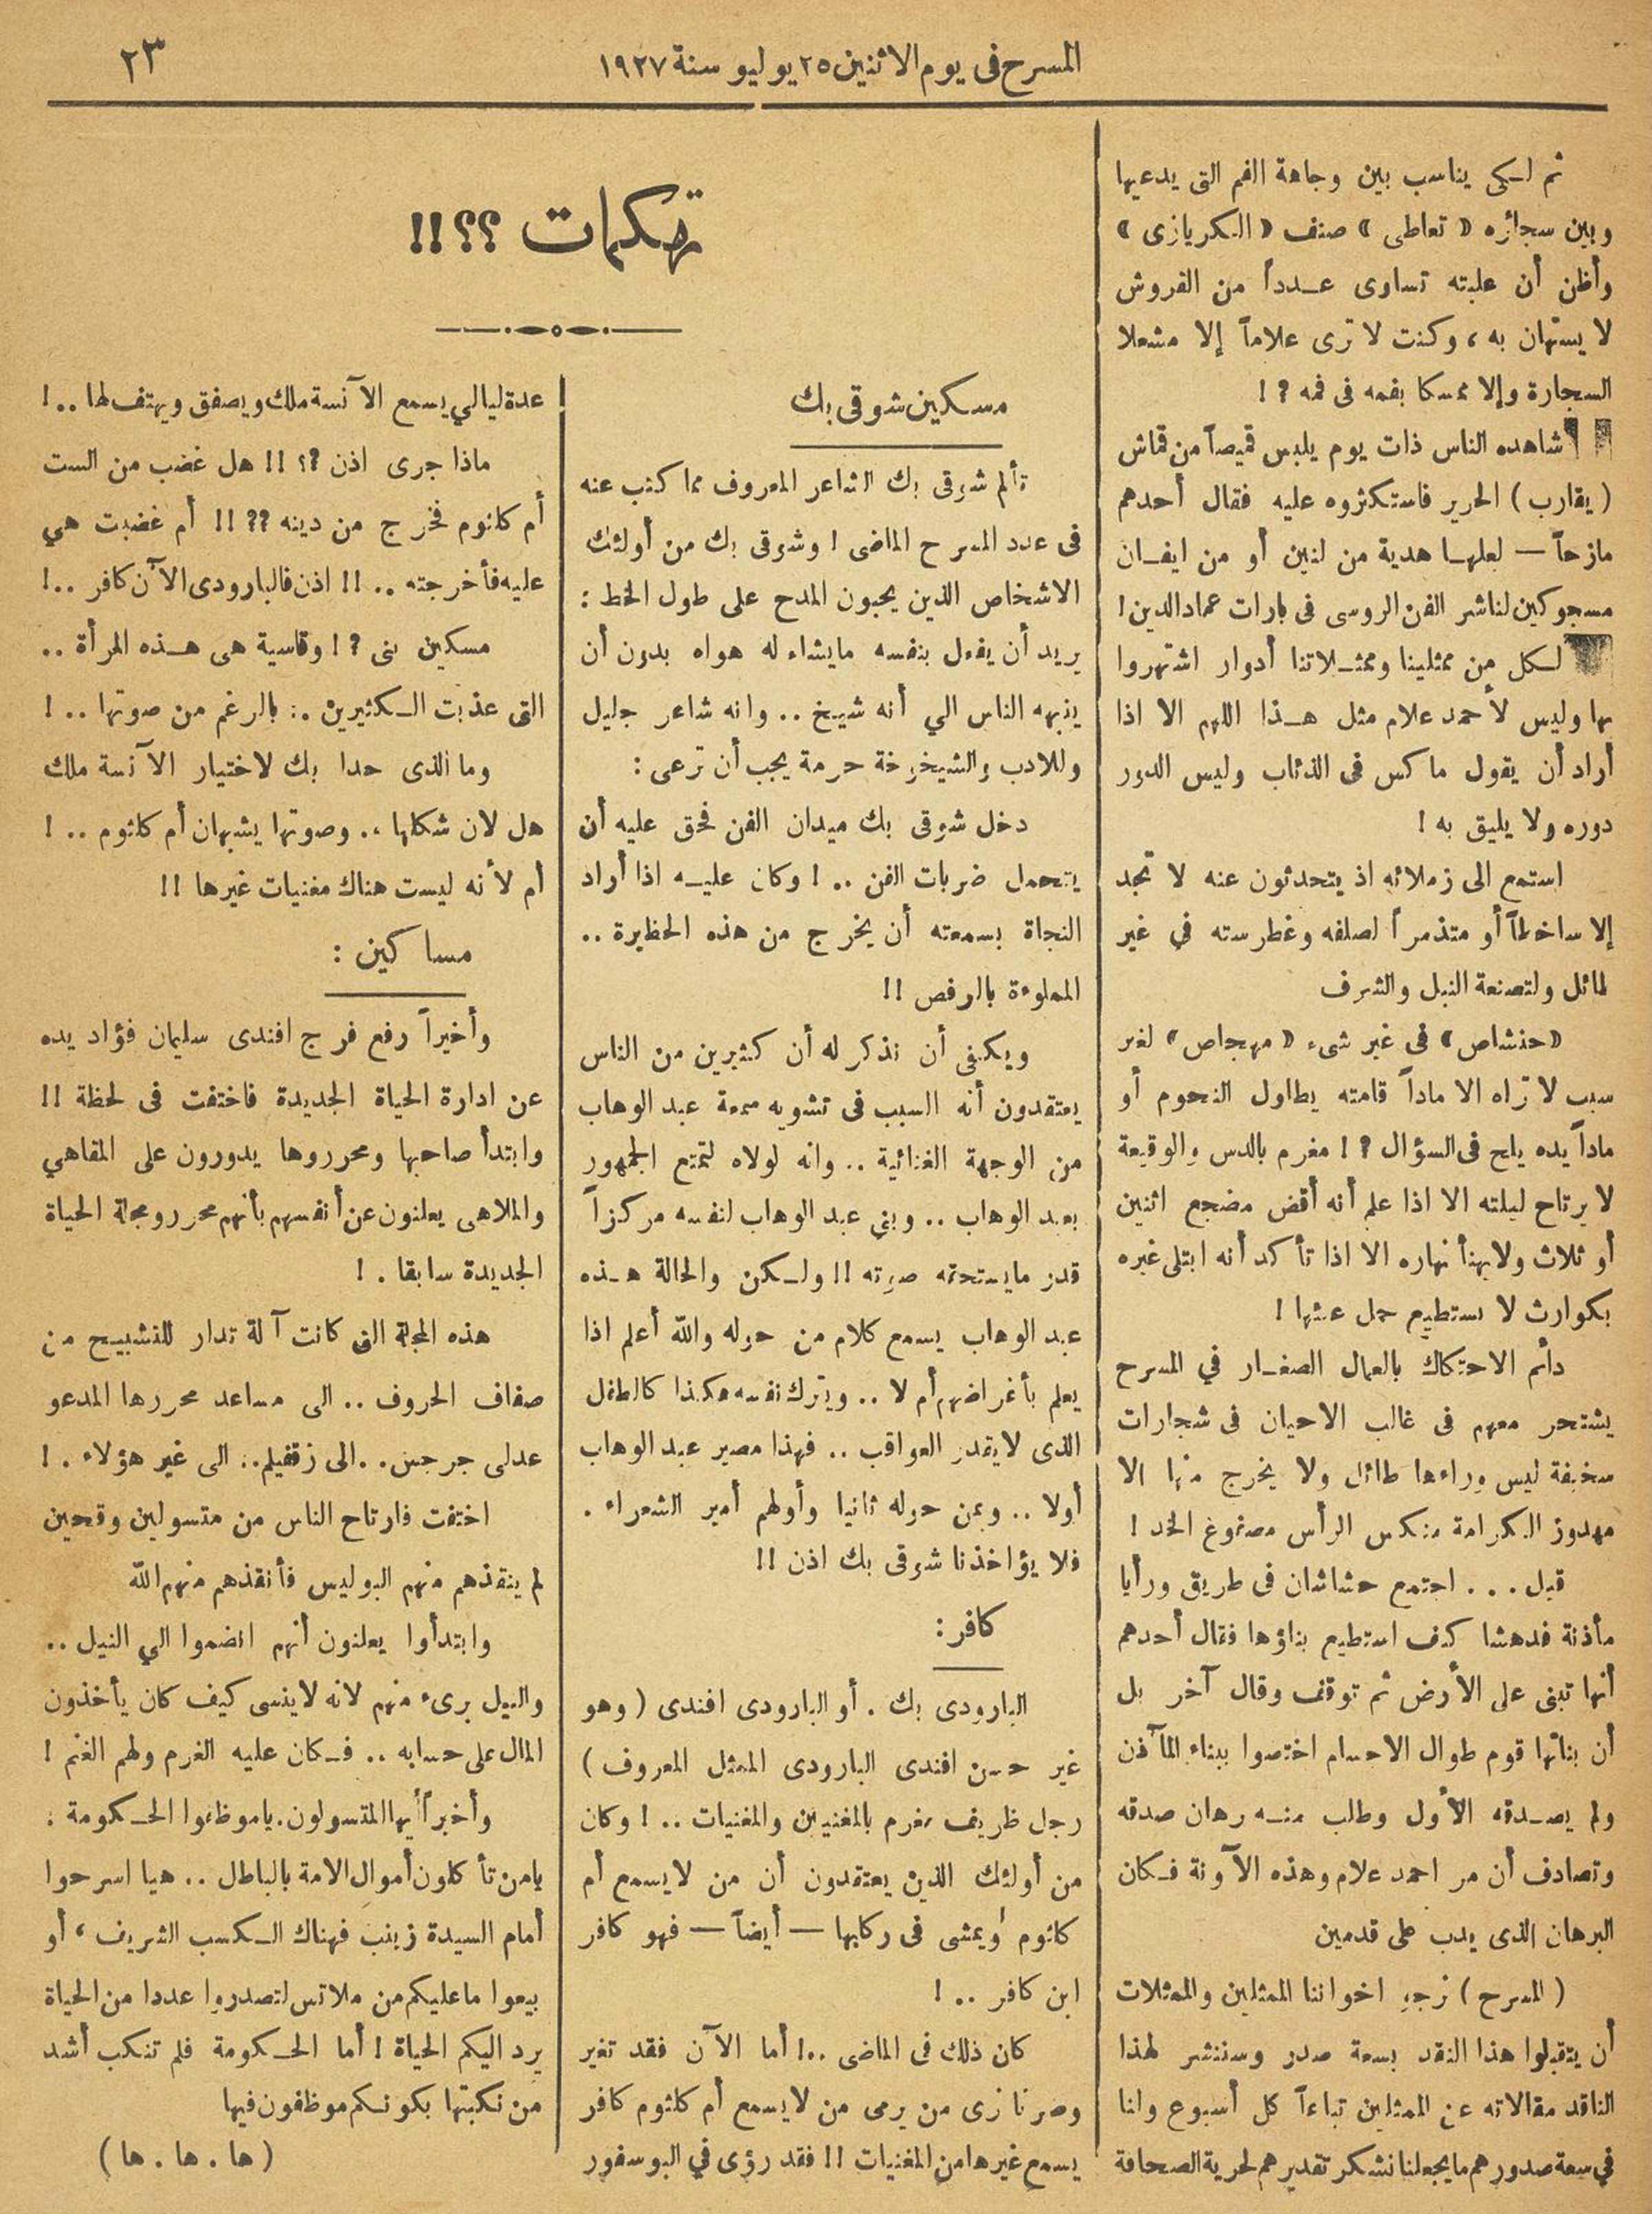 المسرح فى يوم الاثنين ٢٥ يوليو سنة ١٩٢٧
٢٣
ثم لكى يناسب بين وجاهة الفم التى يدعيها
وبين سجائره « تعاطى » صنف « الكريازى »
وأظن أن علبته تساوى عدداً من القروش
لا يستهان به ، وكنت لا ترى علاماً إلا مشعلا
السجارة وإلا ممسكا بفمه فى فمه ? !
شاهده الناس ذات يوم يلبس قميصاً من قماش
( يقارب ) الحرير فاستكثروه عليه فقال أحدهم
مازحاً — لعلها هدية من لنين أو من ايفان
مسجوكين لناشر الفن الروسى فى بارات عماد الدين !
لكل من ممثلينا وممثلاتنا أدوار اشتهروا
بها وليس لأحمد علام مثل هذا اللهم الا اذا
أراد أن يقول ماكس فى الذئاب وليس الدور
دوره ولا يليق به !
استمع الى زملائه اذ يتحدثون عنه لا تجد
إلا ساخطاً أو متذمراً لصلفه وغطرسته في غير
طائل ولتصنعة النبل والشرف
« حنشاص » فى غير شىء « مهجاص » لغير
سبب لا تراه الا ماداً قامته يطاول النجوم أو
ماداً يده يلح فى السؤال ? ! مغرم بالدس والوقيعة
لا يرتاح ليلته الا اذا علم أنه أقض مضجع اثنين
أو ثلاث ولا يهنأ نهاره الا اذا تأكد أنه ابتلى غيره
بكوارث لا يستطيع حمل عبئها !
دائم الاحتكاك بالعمال الصغار في المسرح
يشتجر معهم فى غالب الاحيان فى شجارات
سخيفة ليس وراءها طائل ولا يخرج منها الا
مهدور الكرامة منكس الرأس مصفوغ الخد !
قيل . . . اجتمع حشاشان فى طريق ورأيا
مأذنة فدهشا كيف استطيع بناؤها فقال أحدهم
أنها تبنى على الأرض ثم توقف وقال آخر بل
أن بناتها قوم طوال الاجسام اختصوا ببناء المآذن
ولم يصدقه الأول وطلب منه رهان صدقه
وتصادف أن مر احمد علام وهذه الآونة فكان
البرهان الذى يدب على قدمين
( المسرح ) نرجو اخواننا الممثلين والممثلات
أن يتقبلوا هذا النقد بسعة صدر وسننشر لهذا
الناقد مقالاته عن الممثلين تباعاً كل أسبوع ولنا
في سعة صدورهم ما يجعلنا نشكر تقديرهم لحرية الصحافة
تهكمات ؟؟!!
مسكين شوقى بك
تألم شوقى بك الشاعر المعروف مما كتب عنه
فى عدد المسرح الماضى ! وشوقى بك من أولئك
الاشخاص الذين يحبون المدح على طول الخط :
يريد أن يفعل بنفسه مايشاء له هواه بدون أن
ينبهه الناس الي أنه شيخ .. وانه شاعر جليل
وللادب والشيخوخة حرمة يجب أن ترعى :
دخل شوقى بك ميدان الفن فحق عليه أن
يتحمل ضربات الفن .. ! وكان عليه اذا أراد
النجاة بسمعته أن يخرج من هذه الحظيرة ..
المملوءة بالرفص !!
ويكفى أن نذكر له أن كثيرين من الناس
يعتقدون أنه السبب فى تشويه سمعة عبد الوهاب
من الوجهة الغنائية .. وانه لولاه لتمتع الجمهور
بعبد الوهاب .. وبني عبد الوهاب لنفسه مركزاً
قدر مايستحقه صوته !! ولكن والحالة هذه
عبد الوهاب يسمع كلام من حوله والله أعلم اذا
يعلم بأغراضهم أم لا .. ويترك نفسه هكذا كالطفل
الذى لايقدر العواقب .. فهذا مصير عبد الوهاب
أولا .. وبمن حوله ثانيا وأولهم أمير الشعراء .
فلا يؤاخذنا شوقى بك اذن !!
كافر :
البارودى بك . أو البارودى افندى ( وهو
غير حسن افندى البارودى الممثل المعروف )
رجل ظريف مغرم بالمغنيين والمغنيات .. ! وكان
من أولئك الذين يعتقدون أن من لايسمع أم
كلثوم أو يمشى فى ركابها — أيضاً — فهو كافر
ابن كافر .. !
كان ذلك فى الماضى ..! أما الآن فقد تغير
وصرنا نرى من يرمى من لايسمع أم كلثوم كافر
يسمع غيرها من المغنيات !! فقد رؤى في البوسفور
عدة ليالي يسمع الآنسة ملك ويصفق ويهتف لها .. !
ماذا جرى اذن ?؟ !! هل غضب من الست
أم كلثوم فخرج من دينه ?? !! أم غضبت هي
عليه فأخرجته .. !! اذن فالبارودى الآن كافر .. !
مسكين بنى ? ! وقاسية هى هذه المرأة ..
التى عذبت الكثيرين .. بالرغم من صوتها .. !
وما الذى حدا بك لاختيار الآنسة ملك
هل لان شكلها .. وصوتها يشبهان أم كلثوم .. !
أم لأنه ليست هناك مغنيات غيرها !!
مساكين :
وأخيراً رفع فرج افندى سليمان فؤاد يده
عن ادارة الحياة الجديدة فاختفت فى لحظة !!
وابتدأ صاحبها ومحرروها يدورون على المقاهي
والملاهى يعلنون عن أنفسهم بأنهم محررو مجلة الحياة
الجديدة سابقا . !
هذه المجلة التى كانت آلة تدار للتشبيح من
صفاف الحروف .. الى مساعد محررها المدعو
عدلى جرجس .. الى زقفيلم .. الى غير هؤلاء . !
اختفت فارتاح الناس من متسولين وقحين
لم ينقذهم منهم البوليس فأنقذهم منهم الله
وابتدأوا يعلنون أنهم انضموا الي النيل ..
والنيل برىء منهم لانه لاينسى كيف كان يأخذون
المال على حسابه .. فكان عليه الغرم ولهم الغنم !
وأخيراً أيها المتسولون . ياموظفوا الحكومة .
يامن تأكلون أموال الامة بالباطل .. هيا اسرحوا
أمام السيدة زينب فهناك الكسب الشريف ، أو
بيعوا ما عليكم من ملابس لتصدروا عددا من الحياة
يرد اليكم الحياة ! أما الحكومة فلم تنكب أشد
من نكبتها بكونكم موظفون فيها
( ها . ها . ها )